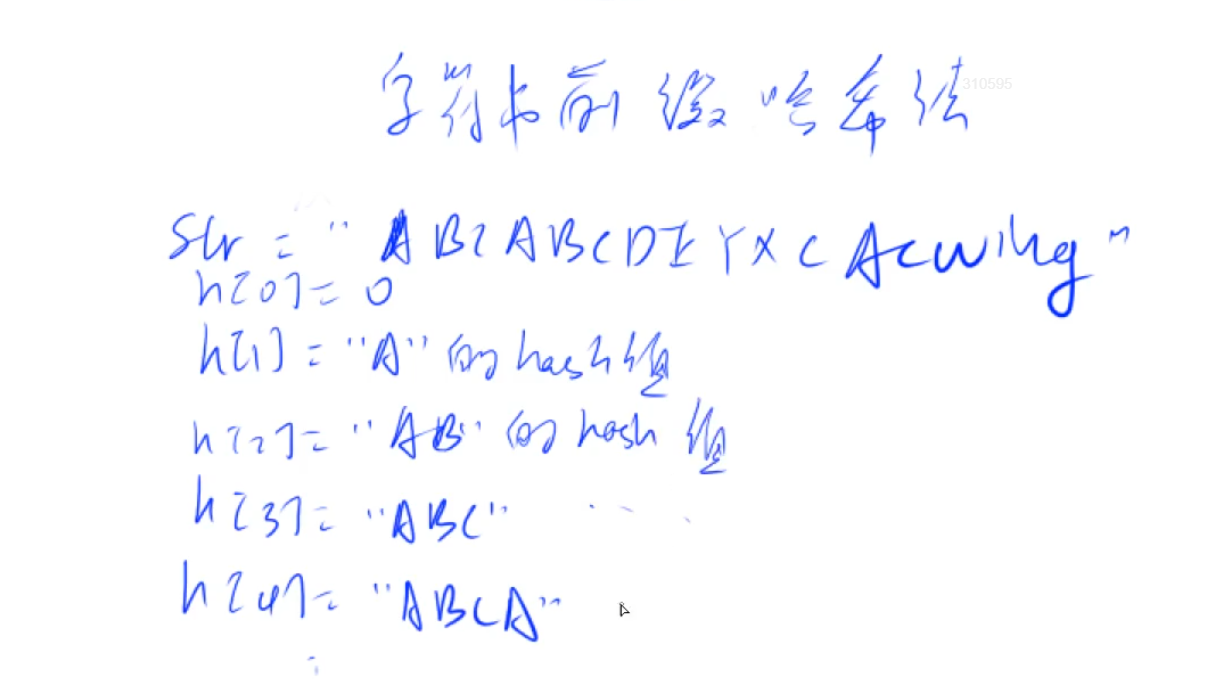 字符串前缀哈希法
310595
Str = "ABCABCDEYXCAcwing"
h[0] = 0
h[1] = "A" 的 hash 值
h[2] = "AB" 的 hash 值
h[3] = "ABC" ...
h[4] = "ABCA"
: